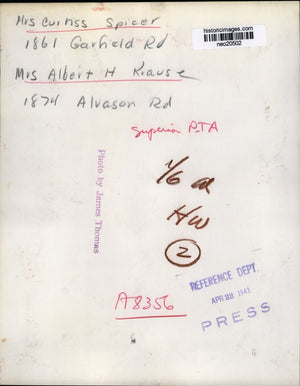 Mrs Curtiss Spicer
1861 Garfield Rd
Mrs Albert H Krause
1874 Alvason Rd
historicimages.com
neo20502
Superior PTA
Photo by James Thomas
1/6
HW
2
REFERENCE DEPT.
APR 28 1943
PRESS
A8356